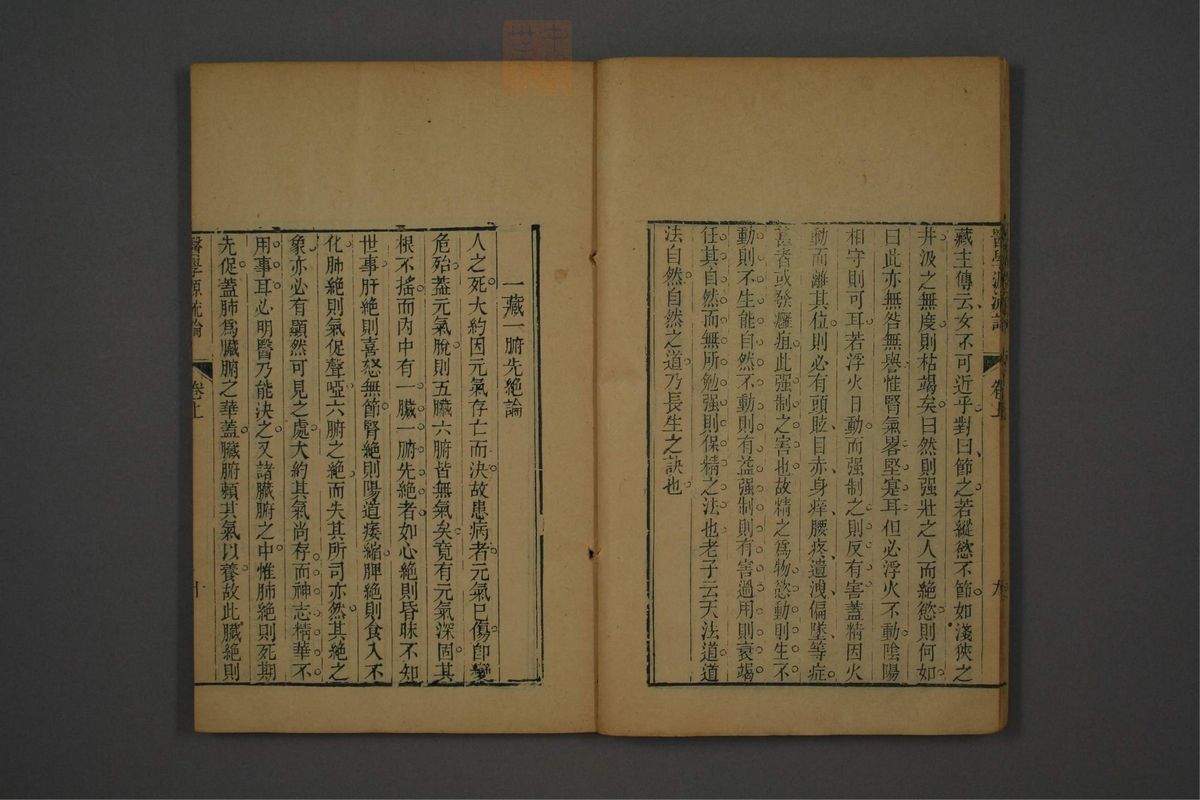 醫學源流論 卷上 九
藏主傳云女不可近乎對曰節之若縱慾不節如淺狹之
井汲之無度則枯竭矣曰然則强壯之人而絶慾則何如
曰此亦無咎無譽惟腎氣畧堅寔耳但必浮火不動陰陽
相守則可耳若浮火日動而强制之則反有害蓋精因火
動而離其位則必有頭眩目赤身痒腰疼遺洩偏墜等症
甚者或發癰疽此强制之害也故精之爲物慾動則生不
動則不生能自然不動則有益强制則有害過用則衰竭
任其自然而無所勉强則保精之法也老子云天法道道
法自然自然之道乃長生之訣也
一藏一腑先絶論
人之死大約因元氣存亡而決故患病者元氣已傷卽變
危殆蓋元氣脫則五臟六腑皆無氣矣竟有元氣深固其
根不搖而内中有一臟一腑先絶者如心絶則昏昧不知
世事肝絶則喜怒無節腎絶則陽道痿縮脾絶則食入不
化肺絶則氣促聲啞六腑之絶而失其所司亦然其絶之
象亦必有顯然可見之處大約其氣尚存而神志精華不
用事耳必明醫乃能決之又諸臟腑之中惟肺絶則死期
先促蓋肺爲臟腑之華蓋臟腑賴其氣以養故此臟絶則
醫學源流論 卷上 十